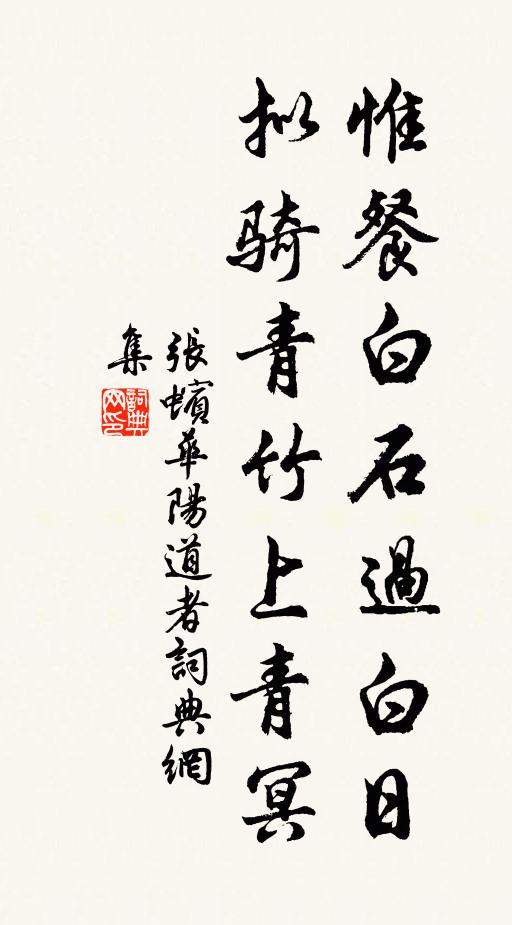 惟餐白石過白日
拟骑青竹上青冥
張蠙華陽道者詞典網
集
詞典
网印